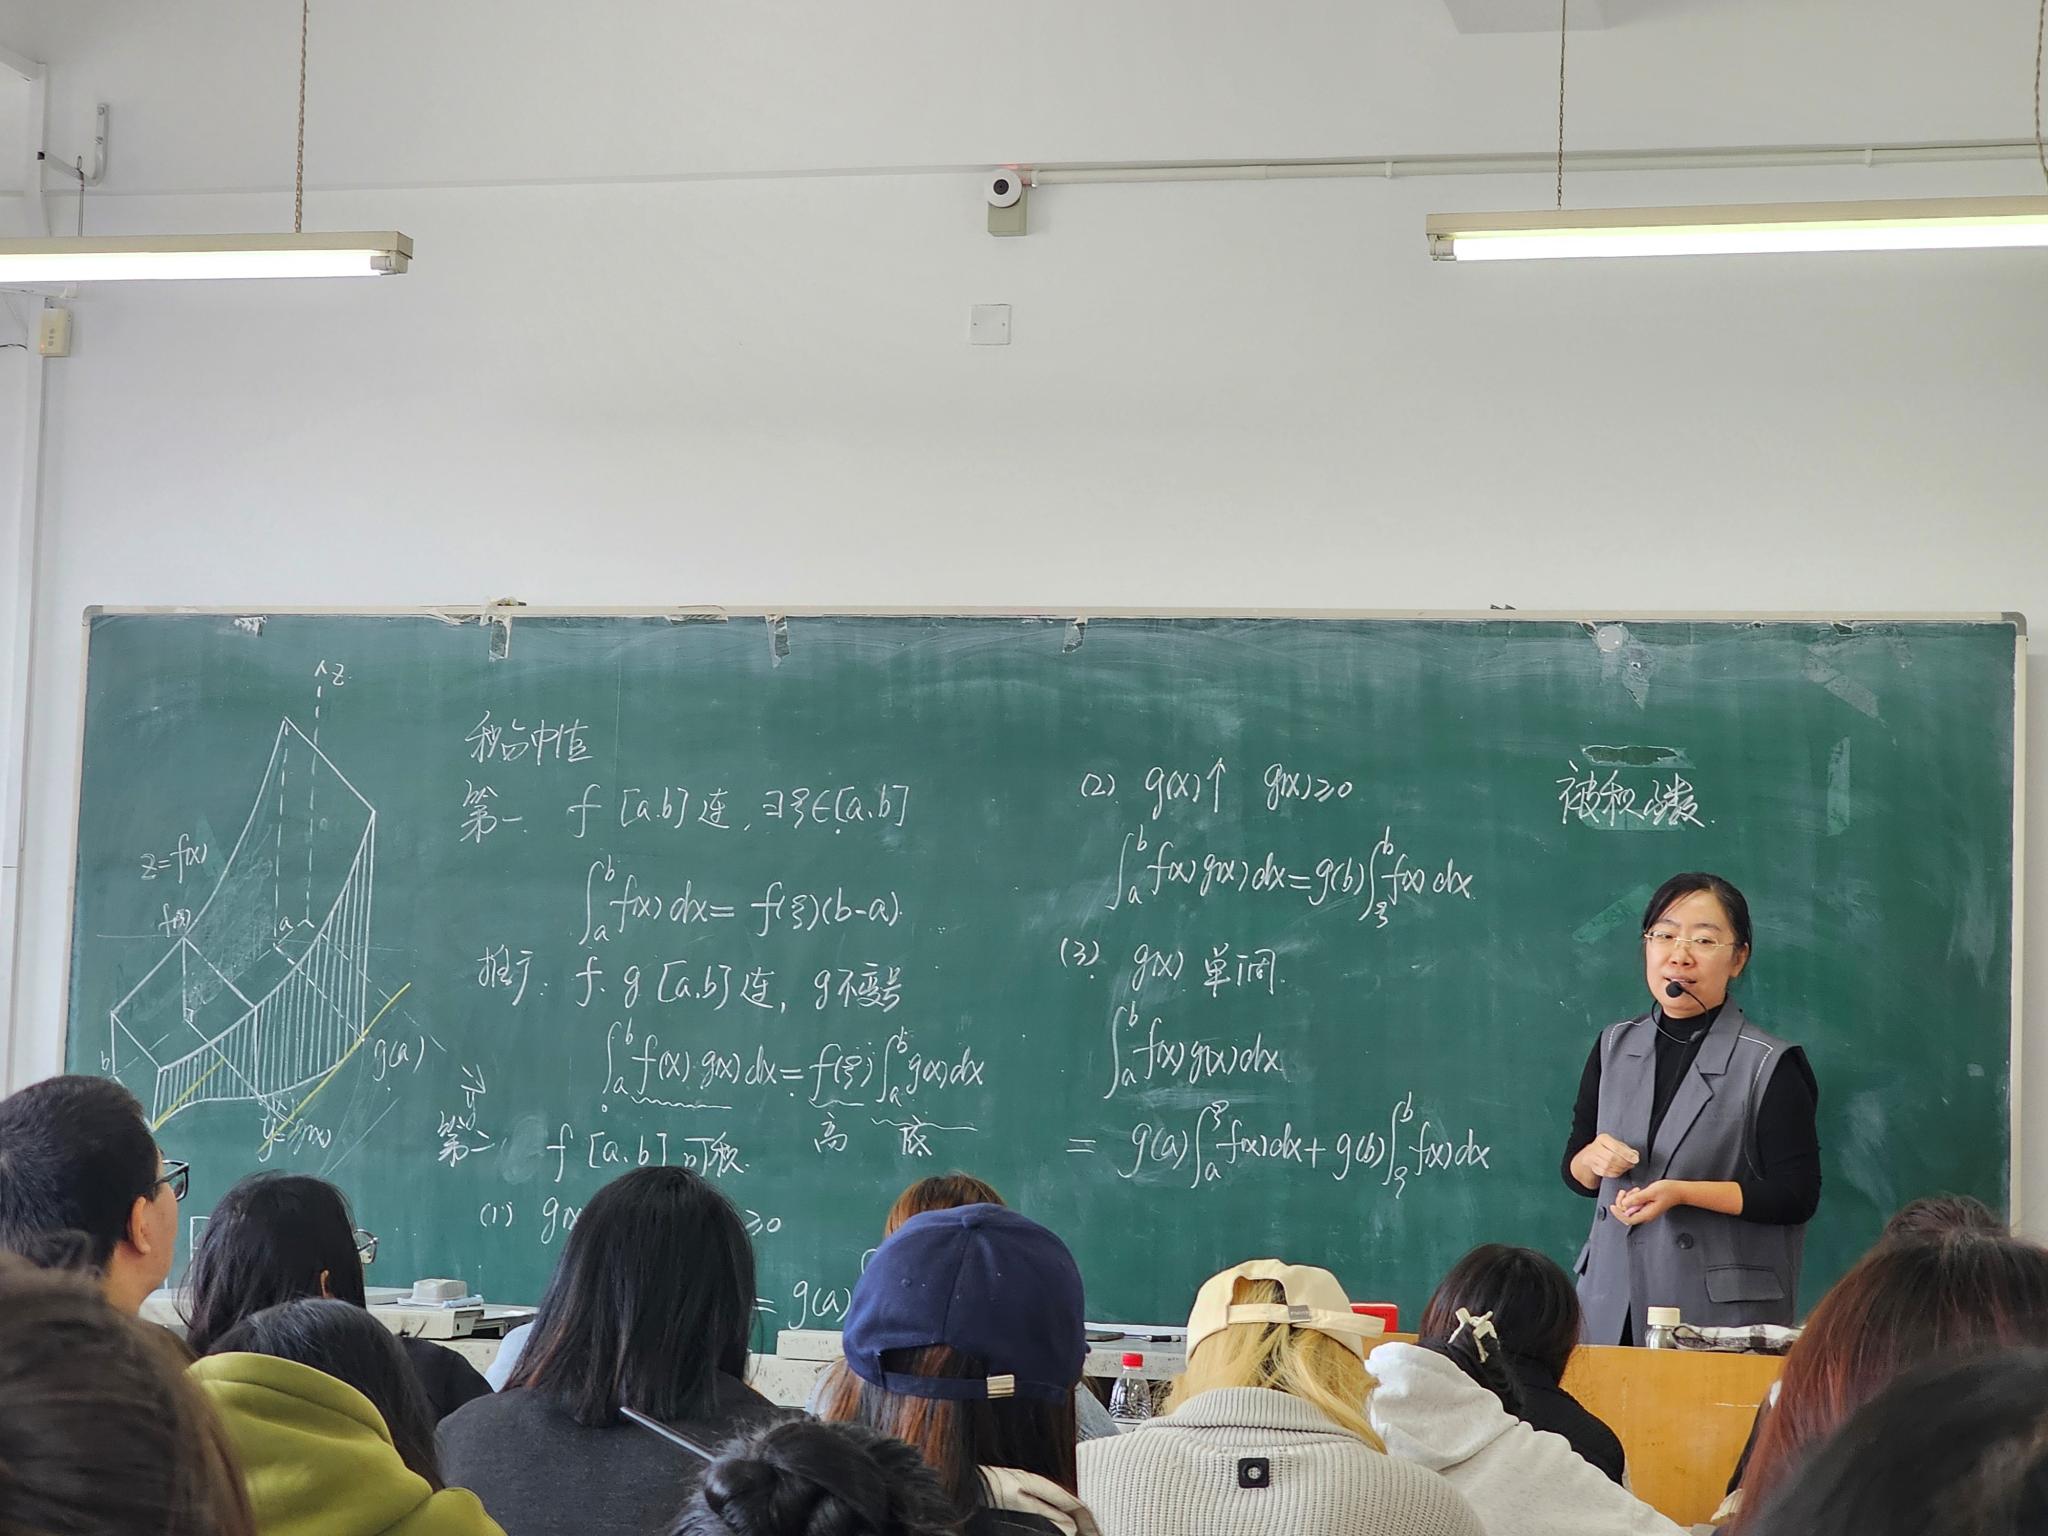 z
z=f(x)
f(ξ)
a
b
g(a)
y=g(x)
积分中值
第一 f [a.b] 连, ∃ξ∈[a.b]
∫ₐᵇ f(x) dx = f(ξ)(b-a)
推广: f. g [a.b] 连, g不变号
∫ₐᵇ f(x) g(x) dx = f(ξ) ∫ₐᵇ g(x) dx
高 底
第二 f [a.b] 可积.
(1) g(x) ≥0
= g(a)
(2) g(x)↑ g(x)≥0
∫ₐᵇ f(x) g(x) dx = g(b) ∫_ξ^b f(x) dx
(3). g(x) 单调.
∫ₐᵇ f(x) g(x) dx
= g(a) ∫_a^ξ f(x) dx + g(b) ∫_ξ^b f(x) dx
被积函数.